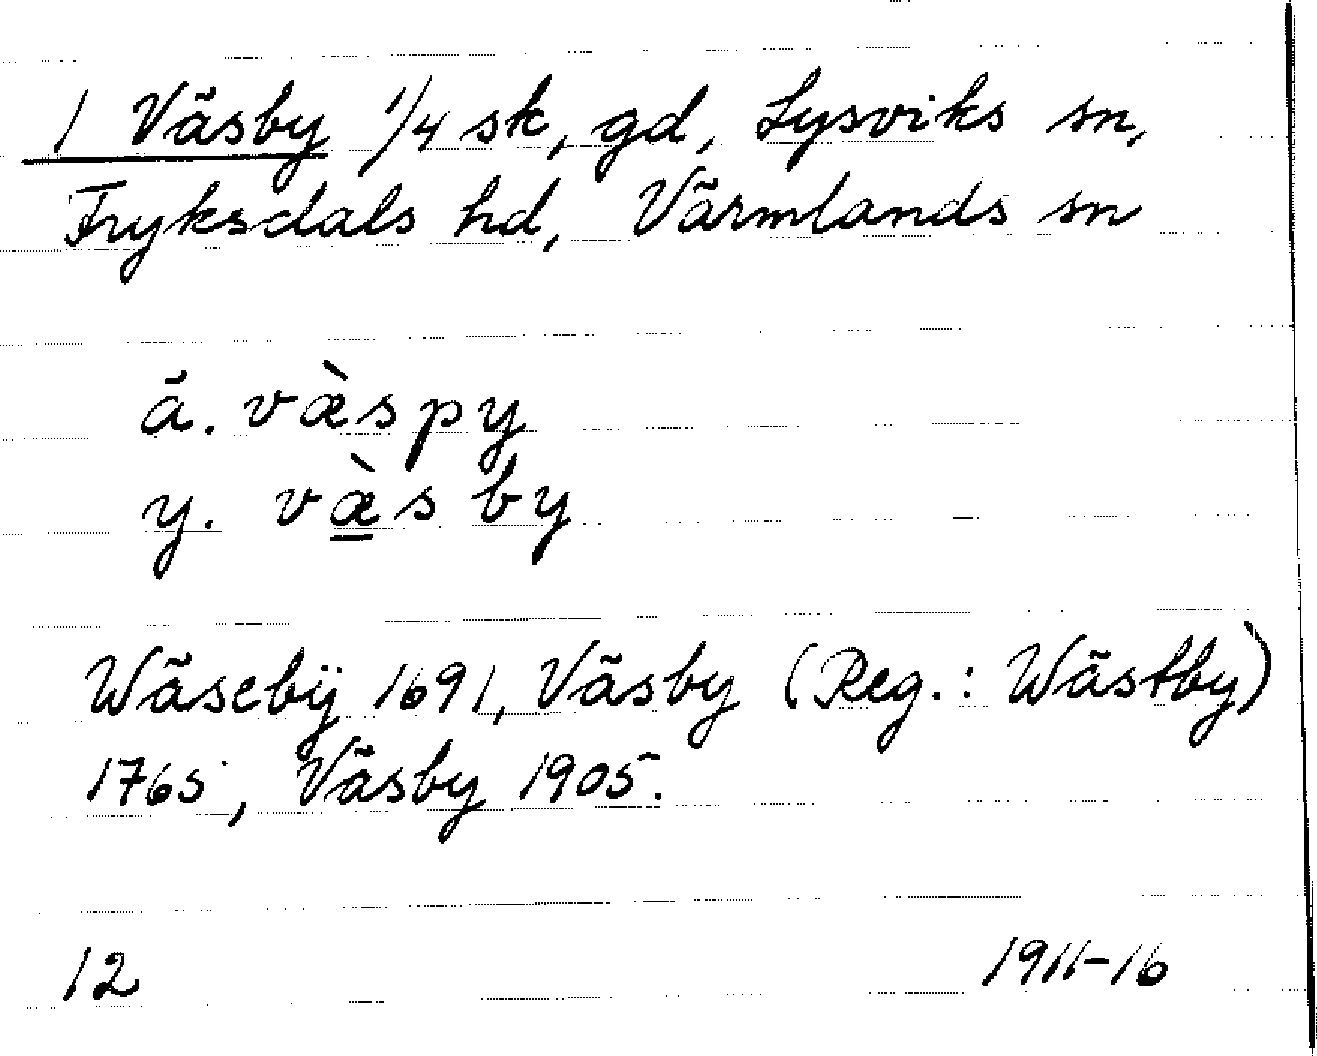 1 Väsby 1/4 sk, gd, Lysviks sn,
Fryksdals hd, Värmlands sn
ä. væ̀spy
y. væ̲̀sby
Wäsebÿ 1691, Väsby (Reg.: Wästby)
1765, Väsby 1905.
12 1911-16